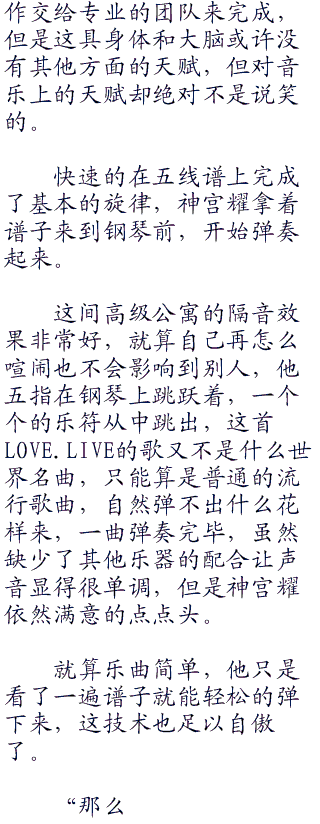 作交给专业的团队来完成，
但是这具身体和大脑或许没
有其他方面的天赋，但对音
乐上的天赋却绝对不是说笑
的。
快速的在五线谱上完成
了基本的旋律，神宫耀拿着
谱子来到钢琴前，开始弹奏
起来。
这间高级公寓的隔音效
果非常好，就算自己再怎么
喧闹也不会影响到别人，他
五指在钢琴上跳跃着，一个
个的乐符从中跳出，这首
LOVE.LIVE的歌又不是什么世
界名曲，只能算是普通的流
行歌曲，自然弹不出什么花
样来，一曲弹奏完毕，虽然
缺少了其他乐器的配合让声
音显得很单调，但是神宫耀
依然满意的点点头。
就算乐曲简单，他只是
看了一遍谱子就能轻松的弹
下来，这技术也足以自傲
了。
“那么